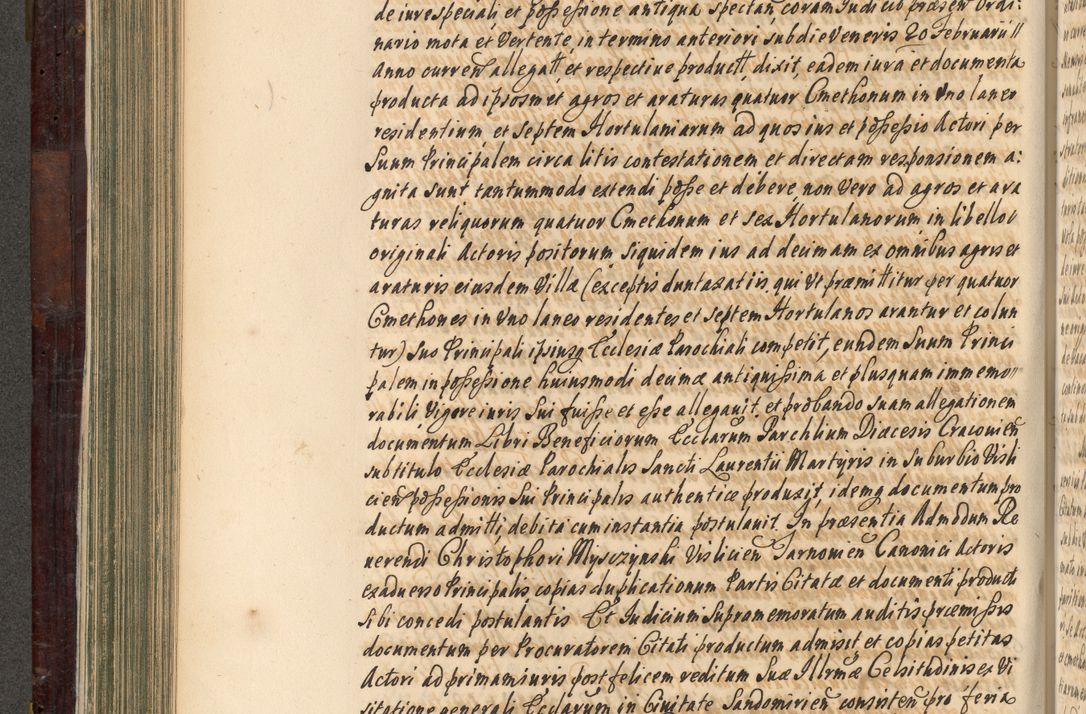 de iure speciali et possessione antiqua spectan coram Iudicio præsen Ordi:
nario mota et Vertente, in termino anteriori sub die Veneris 20 Februarii
Anno curren allegatt et respective productt, dixit, eadem iura et documenta
producta ad ipsosmet agros et araturas quatuor Cmethonum in Vno laneo
residentium et Septem Hortulaniarum ad quos ius et possessio Actori per
Suum Principalem circa litis contestationem et directam responsionem a:
gnita sunt tantummodo extendi posse et debere, non Vero ad agros et ara
turas reliquorum quatuor Cmethonum et sex Hortulanorum in libello
originali Actoris positorum siquidem ius ad decimam ex omnibus agris et
araturis eiusdem Villæ (exceptis duntaxat iis, qui Vt præmittitur per quatuor
Cmethones in Vno laneo residentes et septem Hortulanos arantur et colun
tur) Suo Principali ipsiusq Ecclesiæ Parochiali competit, eundem Suum Princi
palem in possessione huiusmodi decimæ antiquissima et plusquam immemo
rabili Vigore iuris Sui fuisse et esse allegauit, et probando suam allegationem
documentum Libri Beneficiorum Ecclarum Parchlium Diæcesis Cracouien
sub titulo Ecclesiæ Parochialis Sancti Laurentii Martyris in Suburbio Visli
cien possessionis Sui Principalis authentice produxit, idemq documentum pro
ductum admitti, debita cum instantia postulauit. In præsentia Admodum Re
uerendi Christophori Mysczynski Vislicien Tarnouien Canonici Actoris
ex aduerso Principalis copias duplicationum Partis Citatæ et documenti producti
sibi concedi postulantis Et Iudicium Supramemoratum auditis præmissis
documentum per Procuratorem Citati productum admisit et copias petitas
Actori ad primam iuris post felicem reditum Suæ Illrmæ Celsitudinis ex Vi
sitatione generali Ecclarum in Ciuitate Sandomirien consisten pro feria